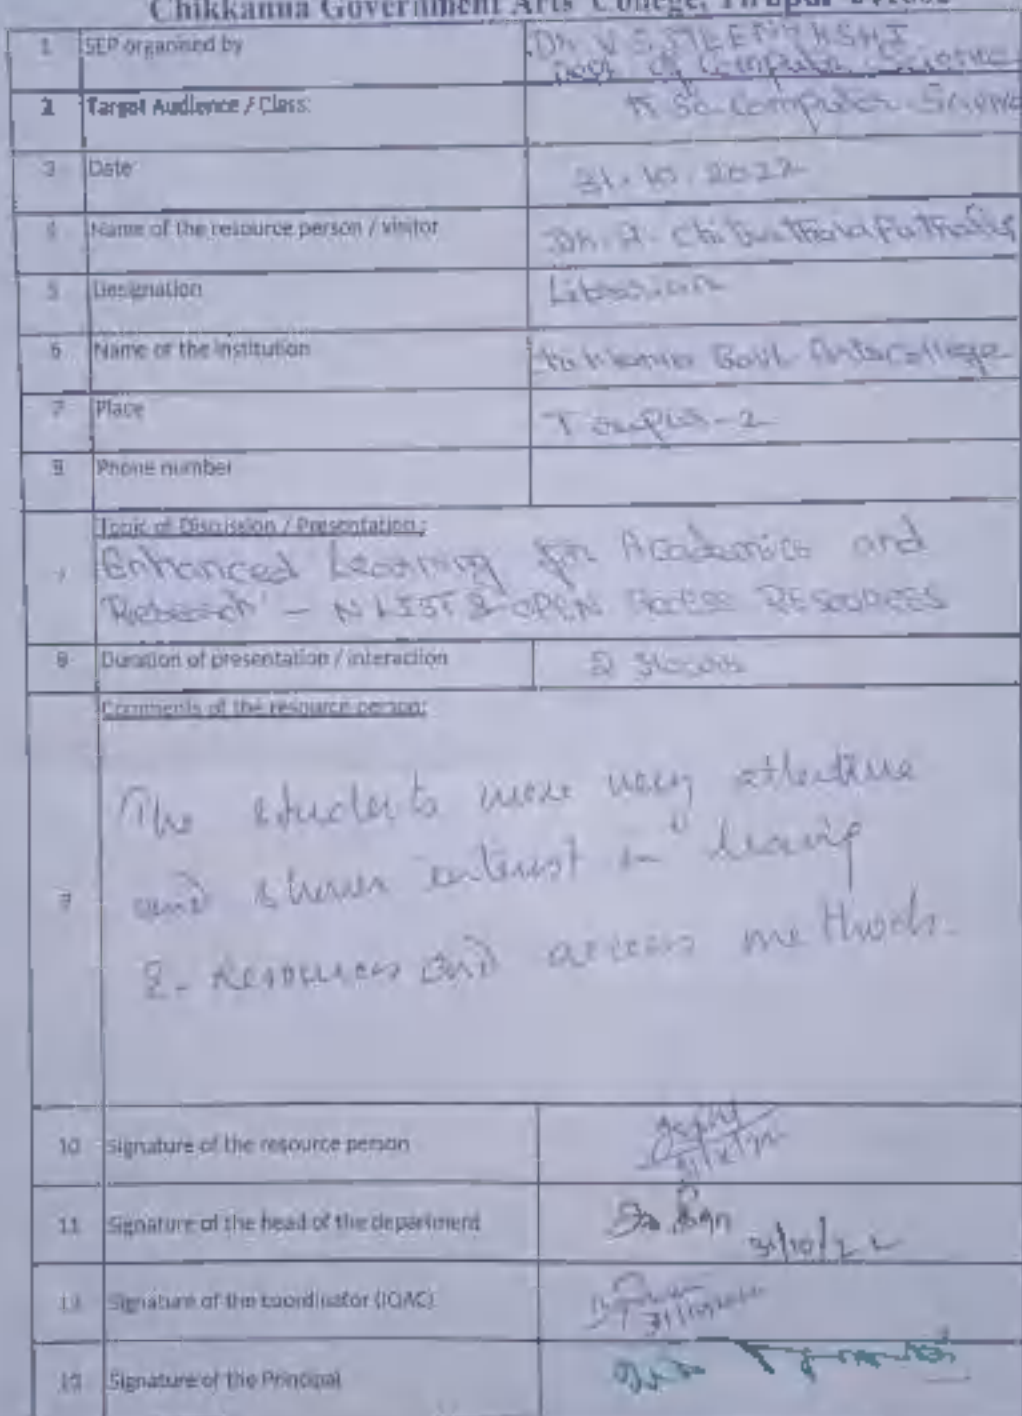 Chikkanna Government Arts College, Tirupur
1 SEP organised by Dr. V S MEENAKSHI
Dept of Computer Science
2 Target Audience / Class: Sc Computer Science
3 Date 31.10.2022
4 Name of the resource person / visitor Dr. A.
5 Designation Librarian
6 Name of the institution Govt Arts College
7 Place -2
8 Phone number
Topic of Discussion / Presentation:
Enhanced Learning for Academics and
Research - N LIST & OPEN Access RESOURCES
8 Duration of presentation / interaction 2
Comments of the resource person:
The students were very attentive
9 and shown interest in
E- Resources and access methods.
10 Signature of the resource person
11 Signature of the head of the department 31/10/22
12 Signature of the coordinator (IQAC)
13 Signature of the Principal